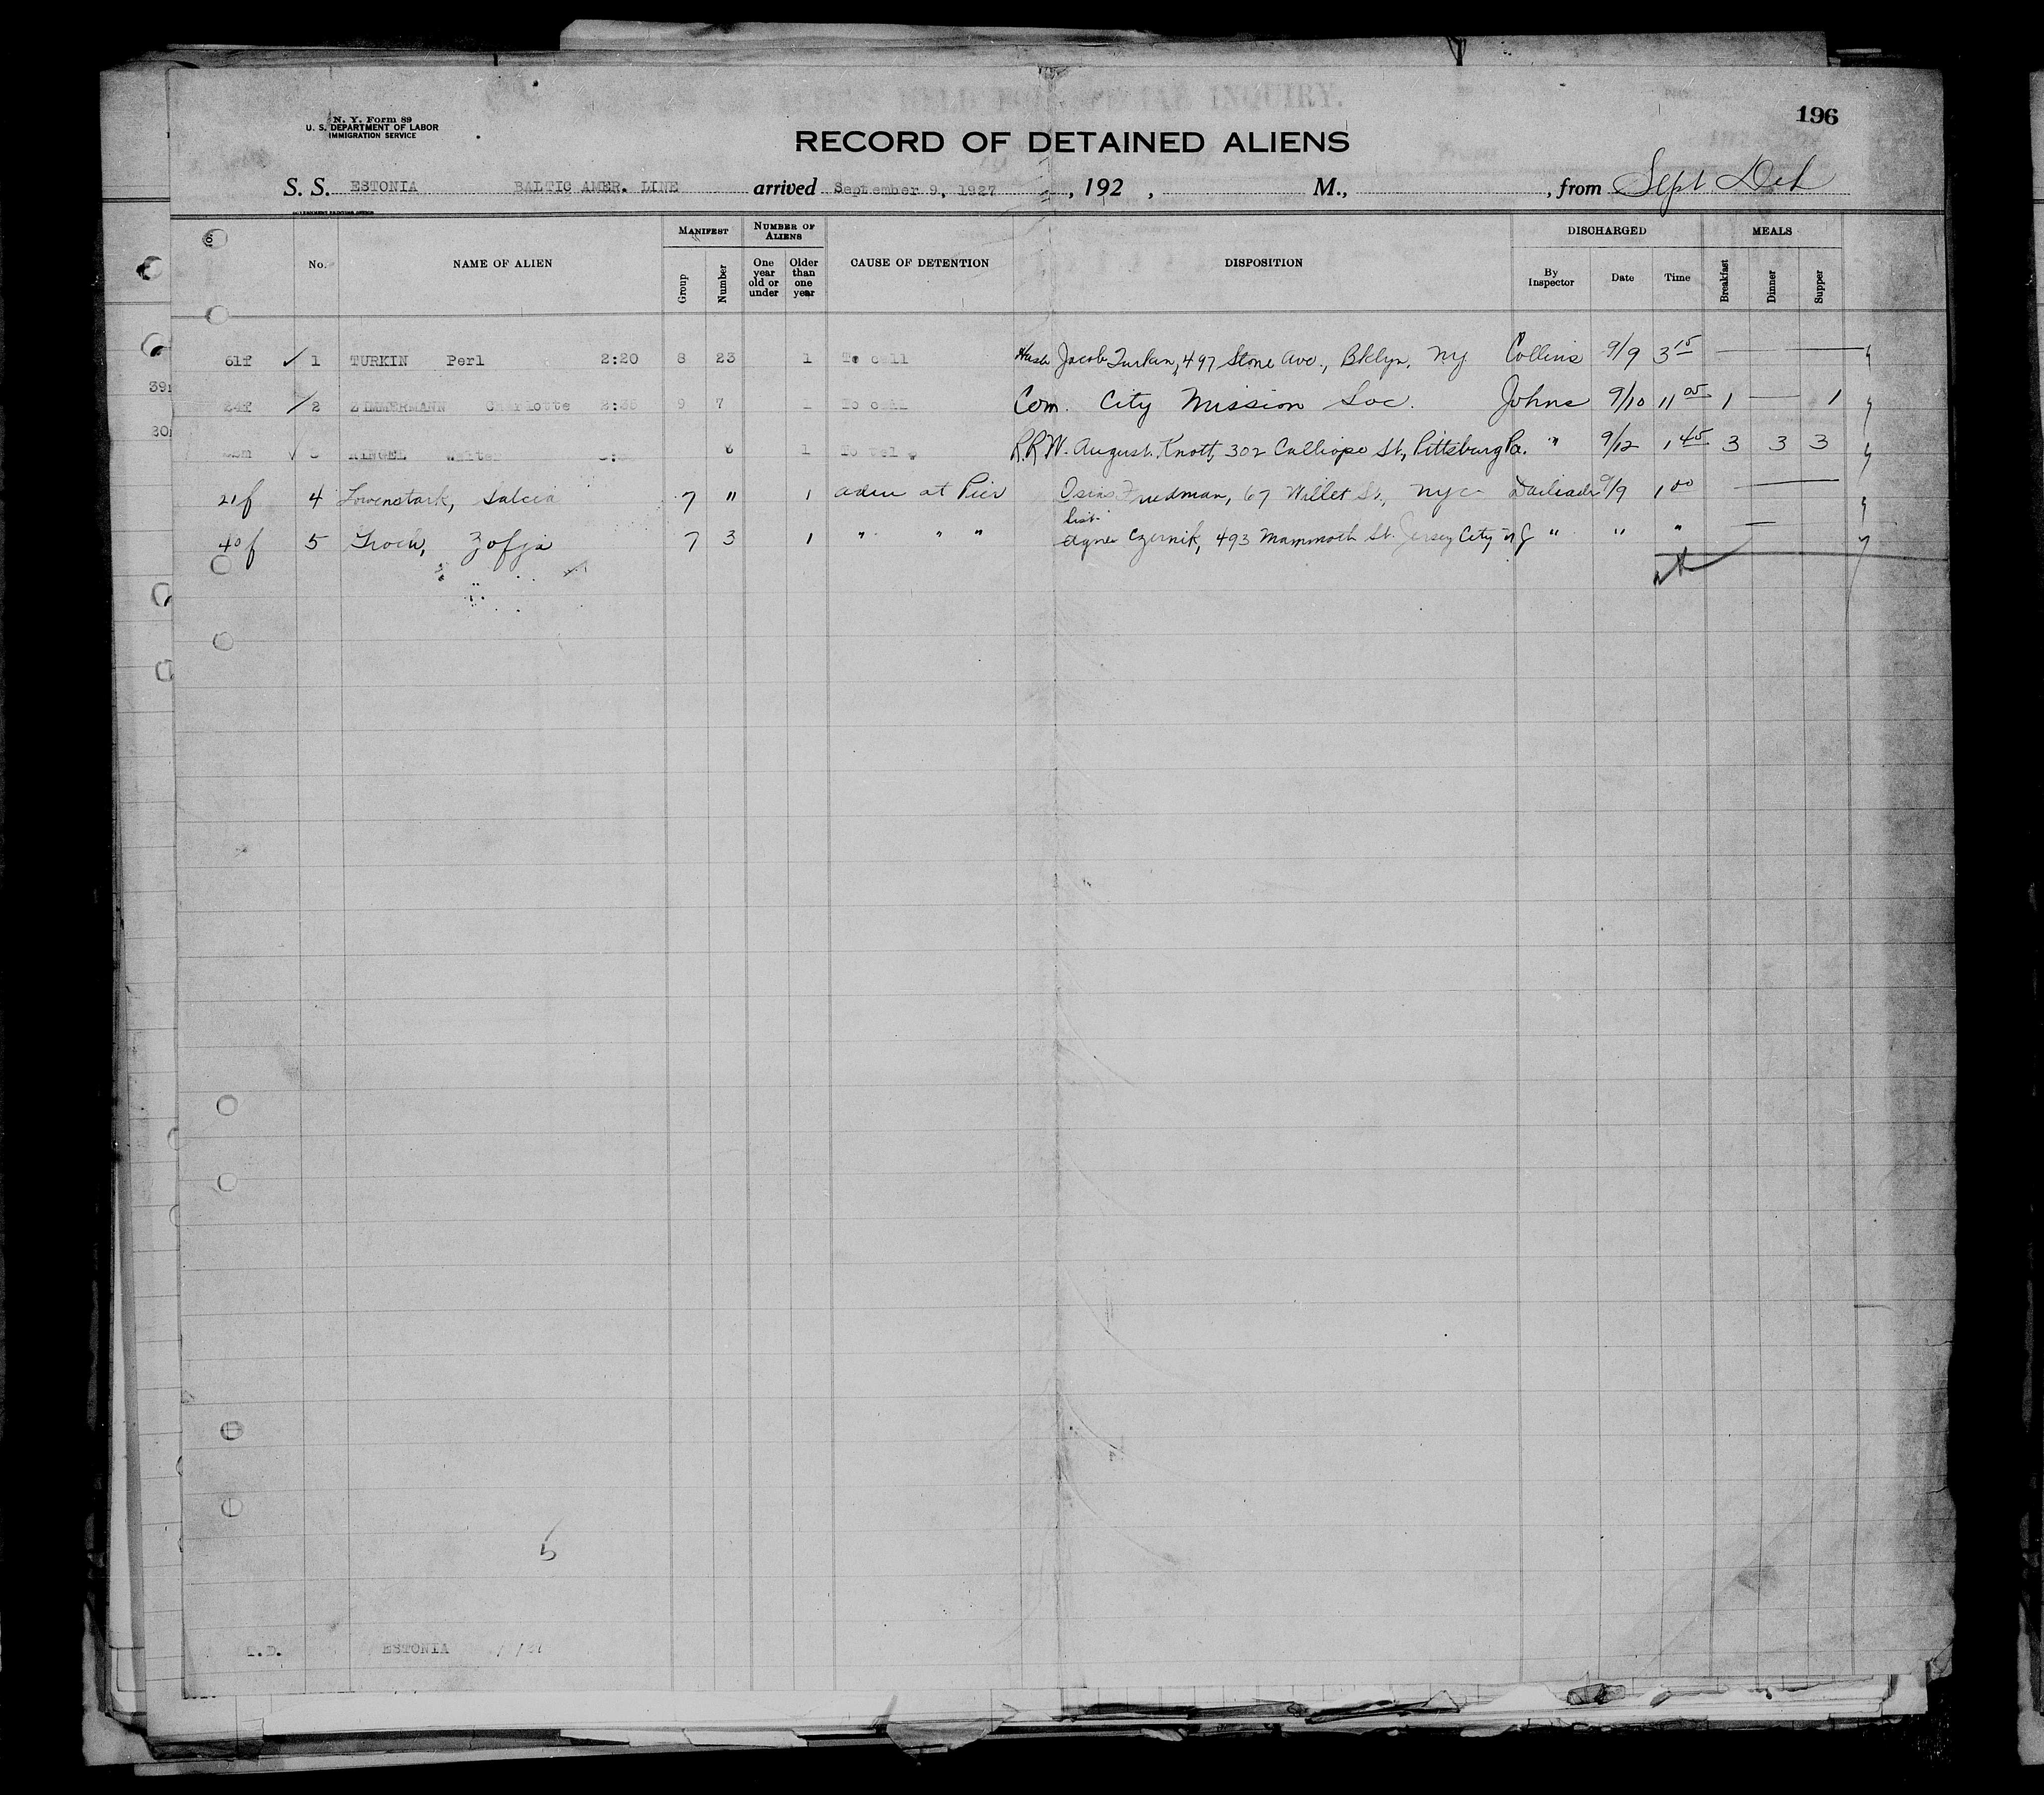 196
N. Y. Form 89
U. S. DEPARTMENT OF LABOR
IMMIGRATION SERVICE
RECORD OF DETAINED ALIENS
S. S. ESTONIA BALTIC AMER. LINE arrived September 9, 1927, 192 , M., , from Sept Det
GOVERNMENT PRINTING OFFICE
No. NAME OF ALIEN MANIFEST Group Number NUMBER OF ALIENS One year old or under Older than one year CAUSE OF DETENTION DISPOSITION DISCHARGED By Inspector Date Time MEALS Breakfast Dinner Supper
61f ✓ 1 TURKIN Perl 2:20 8 23 1 To call Husb Jacob Turkin, 497 Stone Ave., Bklyn. NY Collins 9/9 3 15 —
24f / 2 ZIMMERMANN Charlotte 2:35 9 7 1 To call Com. City Mission Soc. Johns 9/10 11 05 1 — 1
✓ 3 RINGEL Walter 8 1 To tel R.R.W. August Knott, 302 Calliope St, Pittsburg Pa. " 9/12 1 45 3 3 3
21f 4 Lowenstark, Salcia 7 " 1 adm at Pier Osias Friedman, 67 Willet St, NYC 9/9 1 00 —
40f 5 Zofja 7 3 1 " " " Sist. Czernik, 493 Mammoth St. Jersey City NJ " " " —
39
20
5
ESTONIA